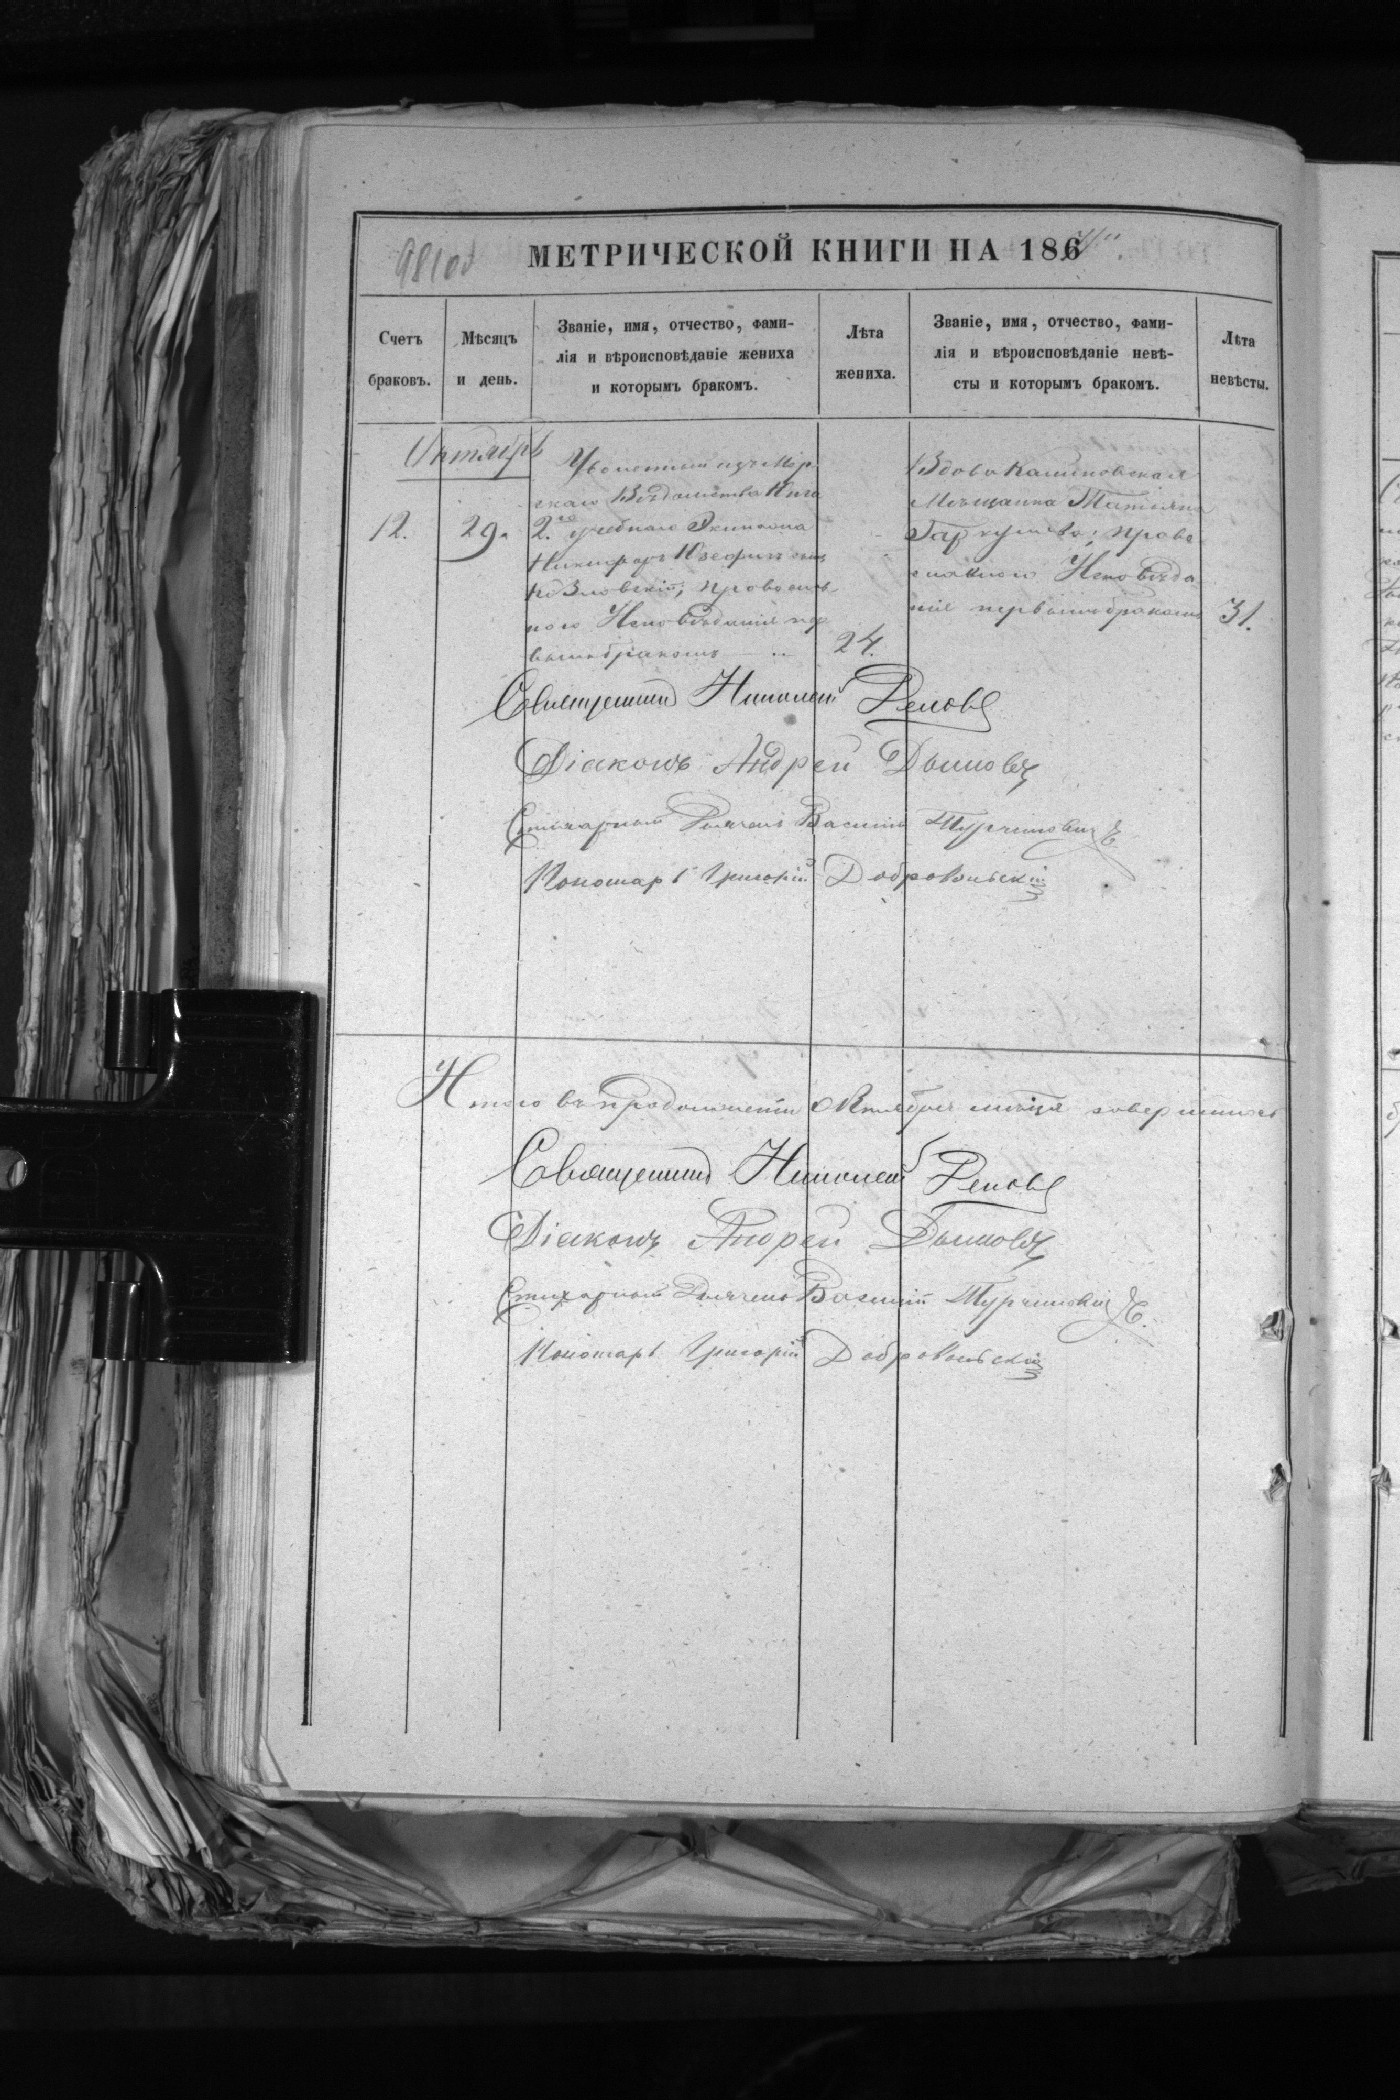 МЕТРИЧЕСКОЙ КНИГИ НА 186
Счетъ браковъ.
Мѣсяцъ и день.
Званіе, имя, отчество, фами-
лія и вѣроисповѣданіе жениха
и которымъ бракомъ.
Лѣта жениха.
Званіе, имя, отчество, фами-
лія и вѣроисповѣданіе невѣ-
сты и которымъ бракомъ.
Лѣта невѣсты.
Октябрь
12.
29.
Уволенный изъ Мор
скаго Вѣдомства
2го учебнаго Экипажа
Козловскій, православ
наго Исповѣданія пер
вымъ бракомъ
24.
Вдова
Мѣщанка Татіяна
право
славнаго Исповѣда
нія первымъ бракомъ
31.
Священникъ Николай
Діаконъ Андрей Дымовъ
Стихарный Дьячекъ Василій Турчиновичъ
Пономарь Григорій Добровольскій
Итого въ продолженіи Октября мѣсяца совершилось
Священникъ Николай
Діаконъ Андрей Дымовъ
Стихарный Дьячекъ Василій Турчиновичъ
Пономарь Григорій Добровольскій